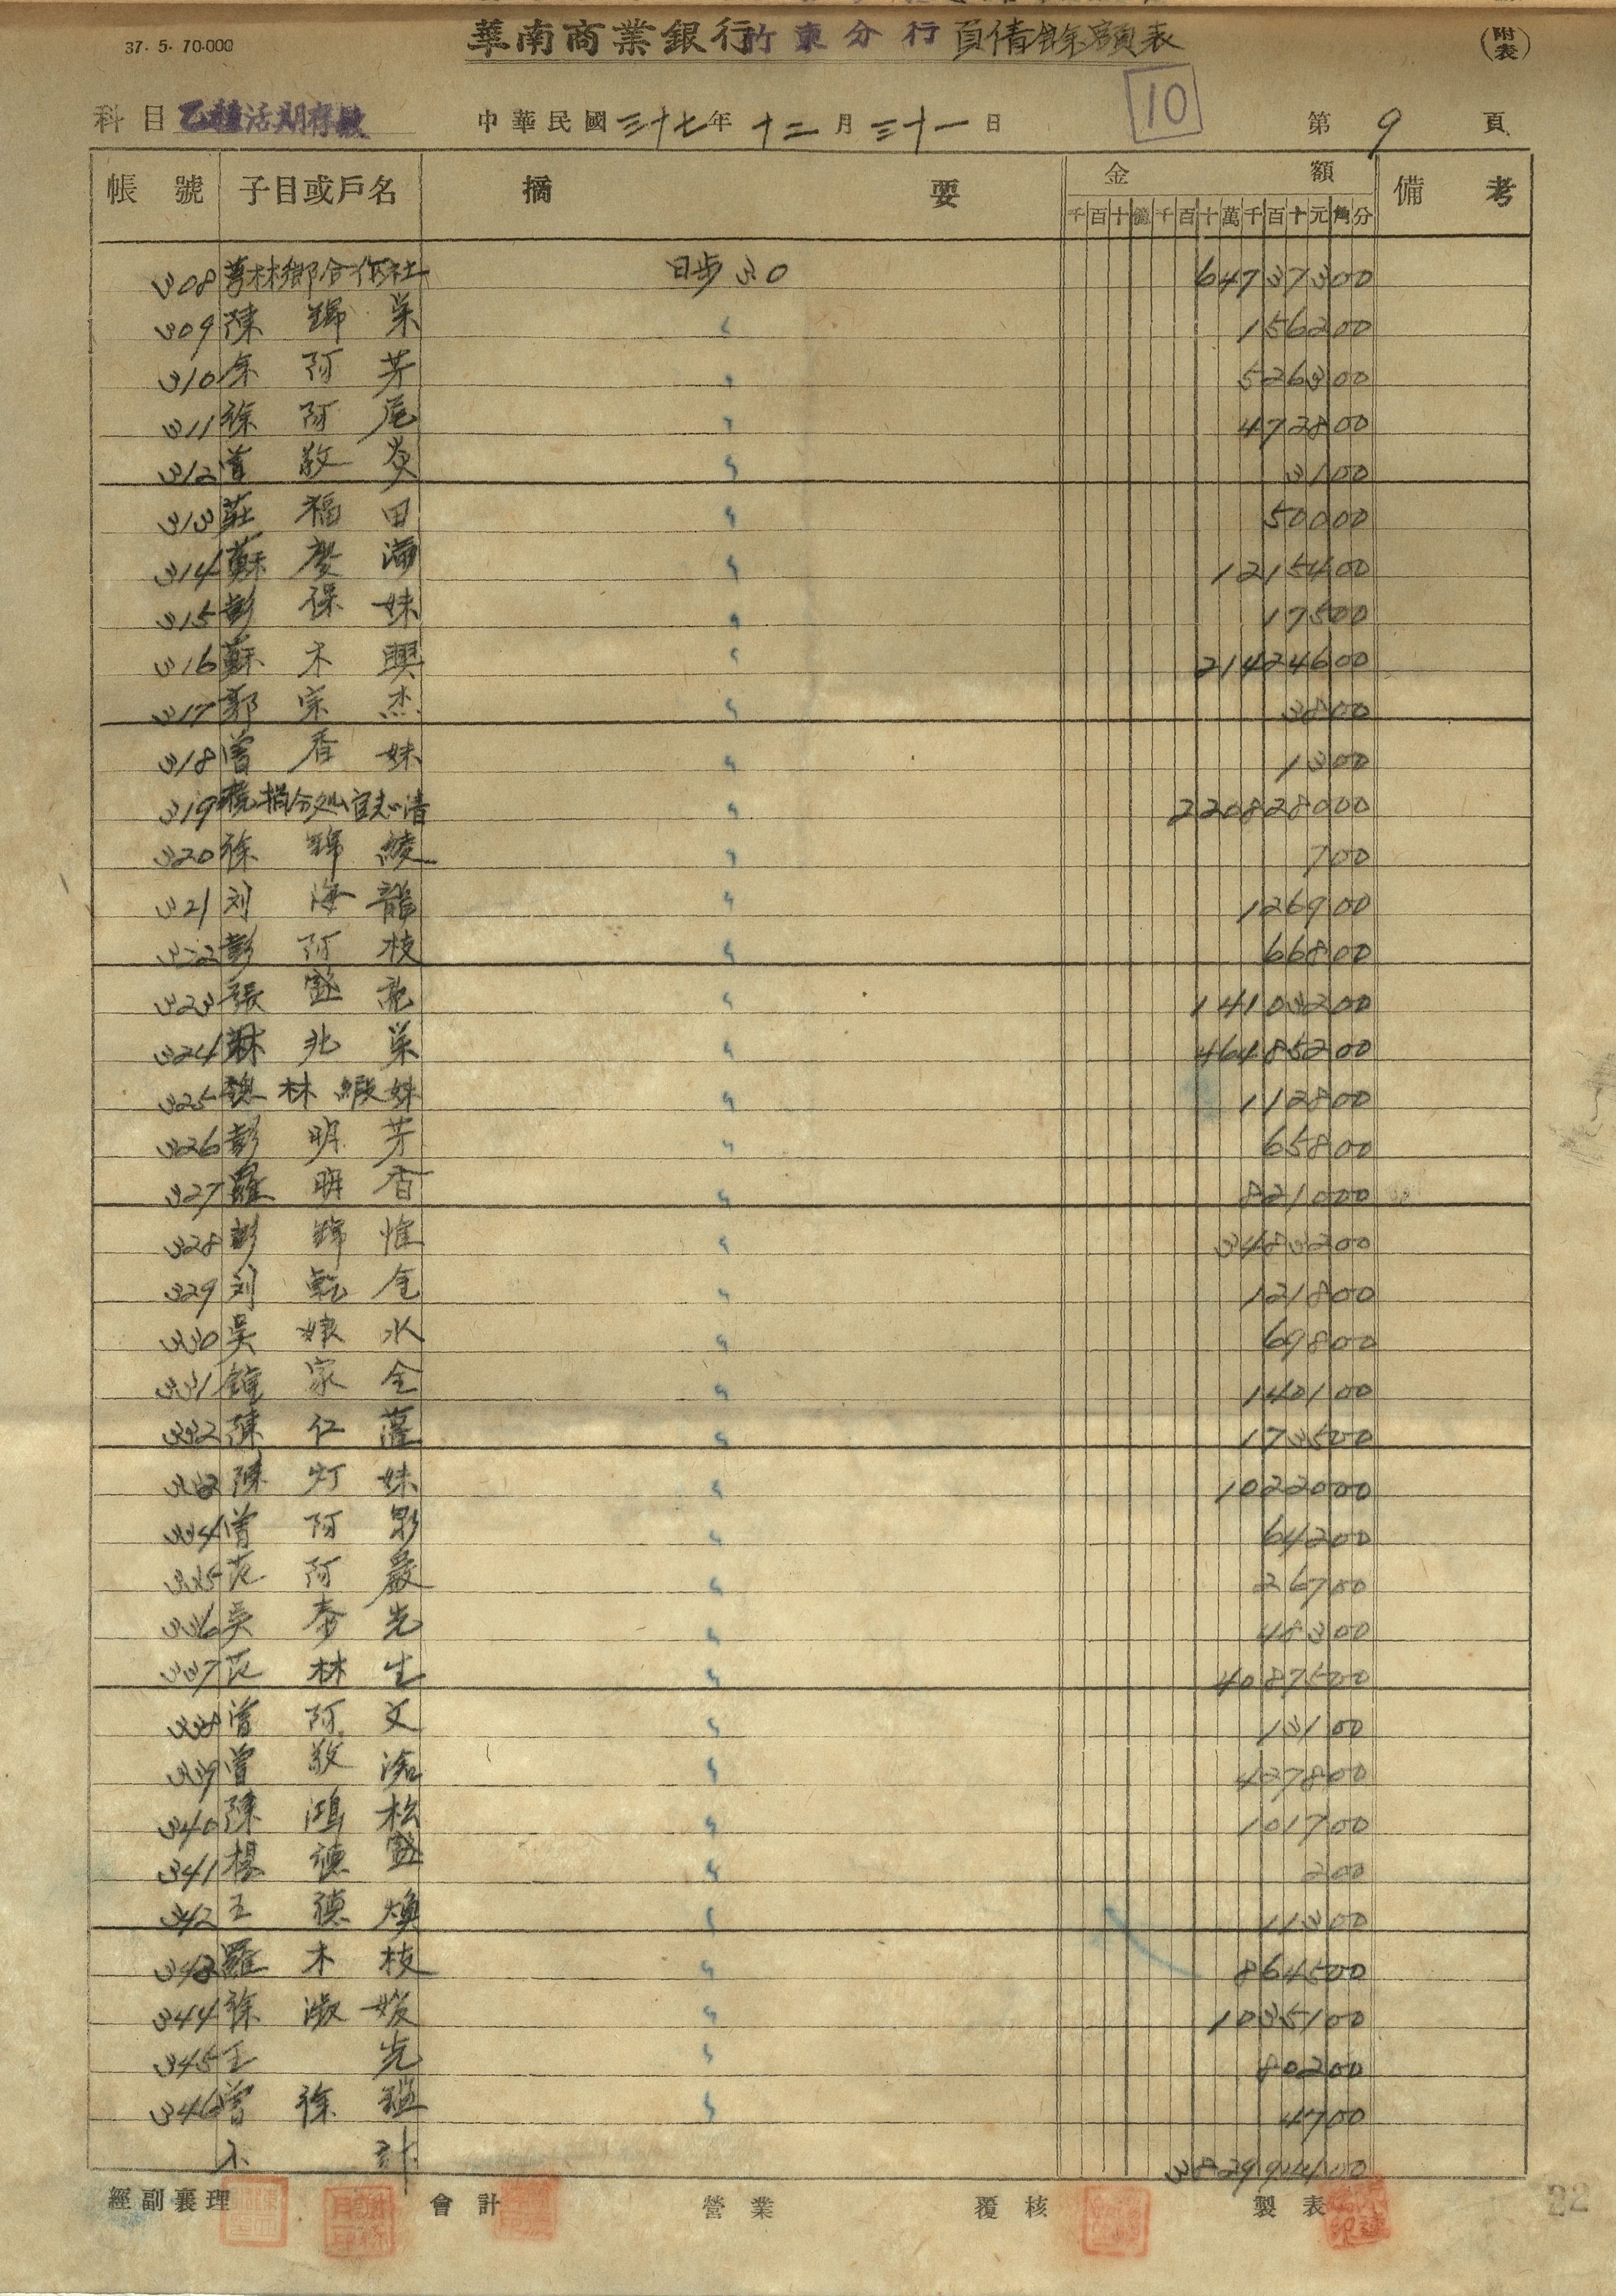 華南商業銀行竹東分行負債餘額表
(附表)
37. 5. 70.000
科目 乙種活期存款
中華民國三十七年十二月三十一日
10
第9頁
帳號 子目或戶名 摘要 金額 備考
千百十億千百十萬千百十元角分
308 芎林鄉合作社 日步30 64737300
309 陳錦栄 〃 156200
310 余阿芳 〃 526300
311 徐阿尾 〃 472800
312 曾敬炎 〃 3100
313 莊福田 〃 50000
314 蘇慶滿 〃 1215400
315 彭保妹 〃 17500
316 蘇木興 〃 21424600
317 郭宗杰 〃 3800
318 曾香妹 〃 1300
319 220828000
320 徐錦綾 〃 700
321 刘海龍 〃 126900
322 彭阿枝 〃 66800
323 張盛 〃 14103200
324 林兆栄 〃 46485200
325 魏林緞妹 〃 112800
326 彭明芳 〃 65800
327 羅明香 〃 821000
328 彭錦惟 〃 3483200
329 刘乾金 〃 121800
330 吳娘水 〃 69800
331 鍾家全 〃 140100
332 陳仁 〃 173500
333 陳灯妹 〃 1022000
334 曾阿彩 〃 64200
335 范阿嚴 〃 26700
336 吳泰光 〃 48300
337 范林生 〃 4087500
338 曾阿文 〃 13100
339 曾敬 〃 427800
340 陳鴻松 〃 101700
341 楊德盛 〃 200
342 王德煥 〃 11300
343 羅木枝 〃 864500
344 徐淑媛 〃 1035100
345 王光 〃 80200
346 曾徐 〃 4700
小計 382994400
經副襄理 會計 營業 覆核 製表
22